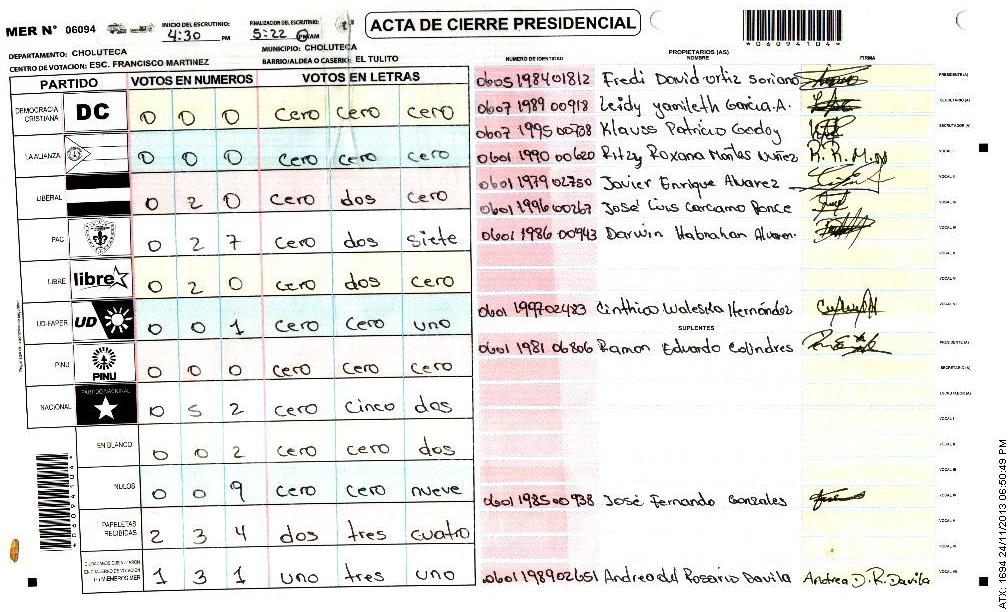 MER N° 06094
INICIO DEL ESCRUTINIO: 4:30 PM
FINALIZACION DEL ESCRUTINIO: 5:22 PM/AM
ACTA DE CIERRE PRESIDENCIAL
*06094104*
DEPARTAMENTO: CHOLUTECA
MUNICIPIO: CHOLUTECA
CENTRO DE VOTACION: ESC. FRANCISCO MARTINEZ
BARRIO/ALDEA O CASERIO: EL TULITO
PARTIDO VOTOS EN NUMEROS VOTOS EN LETRAS
DEMOCRACIA CRISTIANA DC 0 0 0 cero cero cero
LA ALIANZA 0 0 0 cero cero cero
LIBERAL 0 2 0 cero dos cero
PAC 0 2 7 cero dos siete
LIBRE libre 0 2 0 cero dos cero
UD-FAPER UD 0 0 1 cero cero uno
PINU PINU 0 0 0 cero cero cero
NACIONAL PARTIDO NACIONAL 0 5 2 cero cinco dos
EN BLANCO 0 0 2 cero cero dos
NULOS 0 0 9 cero cero nueve
PAPELETAS RECIBIDAS 2 3 4 dos tres cuatro
1 3 1 uno tres uno
*06094104*
PROPIETARIOS (AS)
NUMERO DE IDENTIDAD NOMBRE FIRMA
0605 1984 01812 Fredi David ortiz soriano PRESIDENTE(A)
0607 1989 00918 Leidy yamileth Garcia.A. SECRETARIO (A)
0607 1995 00738 Klauss Patricio Godoy ESCRUTADOR (A)
0601 1990 00620 Ritzy Roxana Nuñez R. R. M. N VOCAL I
0601 1979 02750 Javier Enrique Alvarez VOCAL II
0601 1996 00267 José Luis Carcamo Ponce VOCAL III
0601 1986 00943 Darwin Habrahan Alvaren. VOCAL IV
VOCAL V
0601 1997 02483 Cinthia Waleska Hernández
SUPLENTES
0601 1981 06806 Ramon Eduardo Colindres PRESIDENTE (A)
SECRETARIO (A)
ESCRUTADOR (A)
VOCAL I
VOCAL II
VOCAL III
0601 1985 00938 José Fernando Gonzales VOCAL IV
VOCAL V
0601 1989 02651 Andrea del Rosario Davila Andrea D. R. Davila
ATX: 1694 24/11/2013 06:50:49 PM